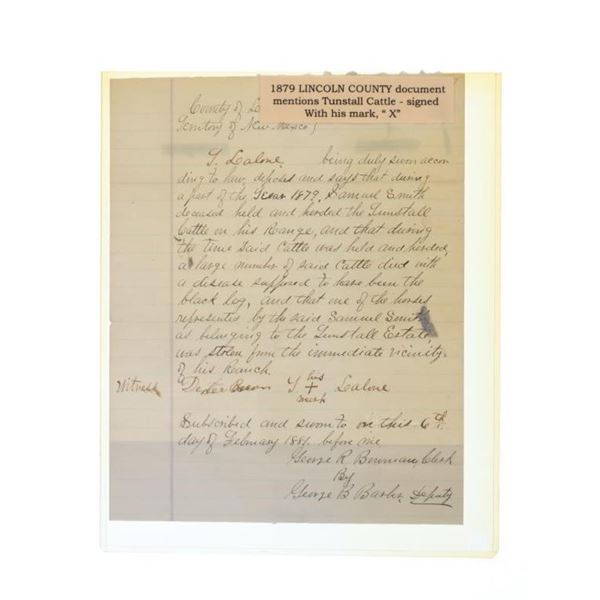 1879 LINCOLN COUNTY document
mentions Tunstall Cattle - signed
With his mark, " X"
County of
Territory of New Mexico
S. Lalone being duly sworn accor
ding to law, deposes and says that during
a part of the Year 1879, Samuel Smith
deceased held and herded the Tunstall
Cattle on his Range, and that during
the time said Cattle was held and herded,
a large number of said Cattle died with
a disease supposed to have been the
black leg, and that one of the horses
represented by the said Samuel Smith
as belonging to the Tunstall Estate,
was stolen from the immediate vicinity
of his Ranch.
Witness Dexter S. his Lalone
+
mark
Subscribed and sworn to on this 6th
day of February 1881, before me
George R. Bowman, Clerk
By
George B Barber Deputy